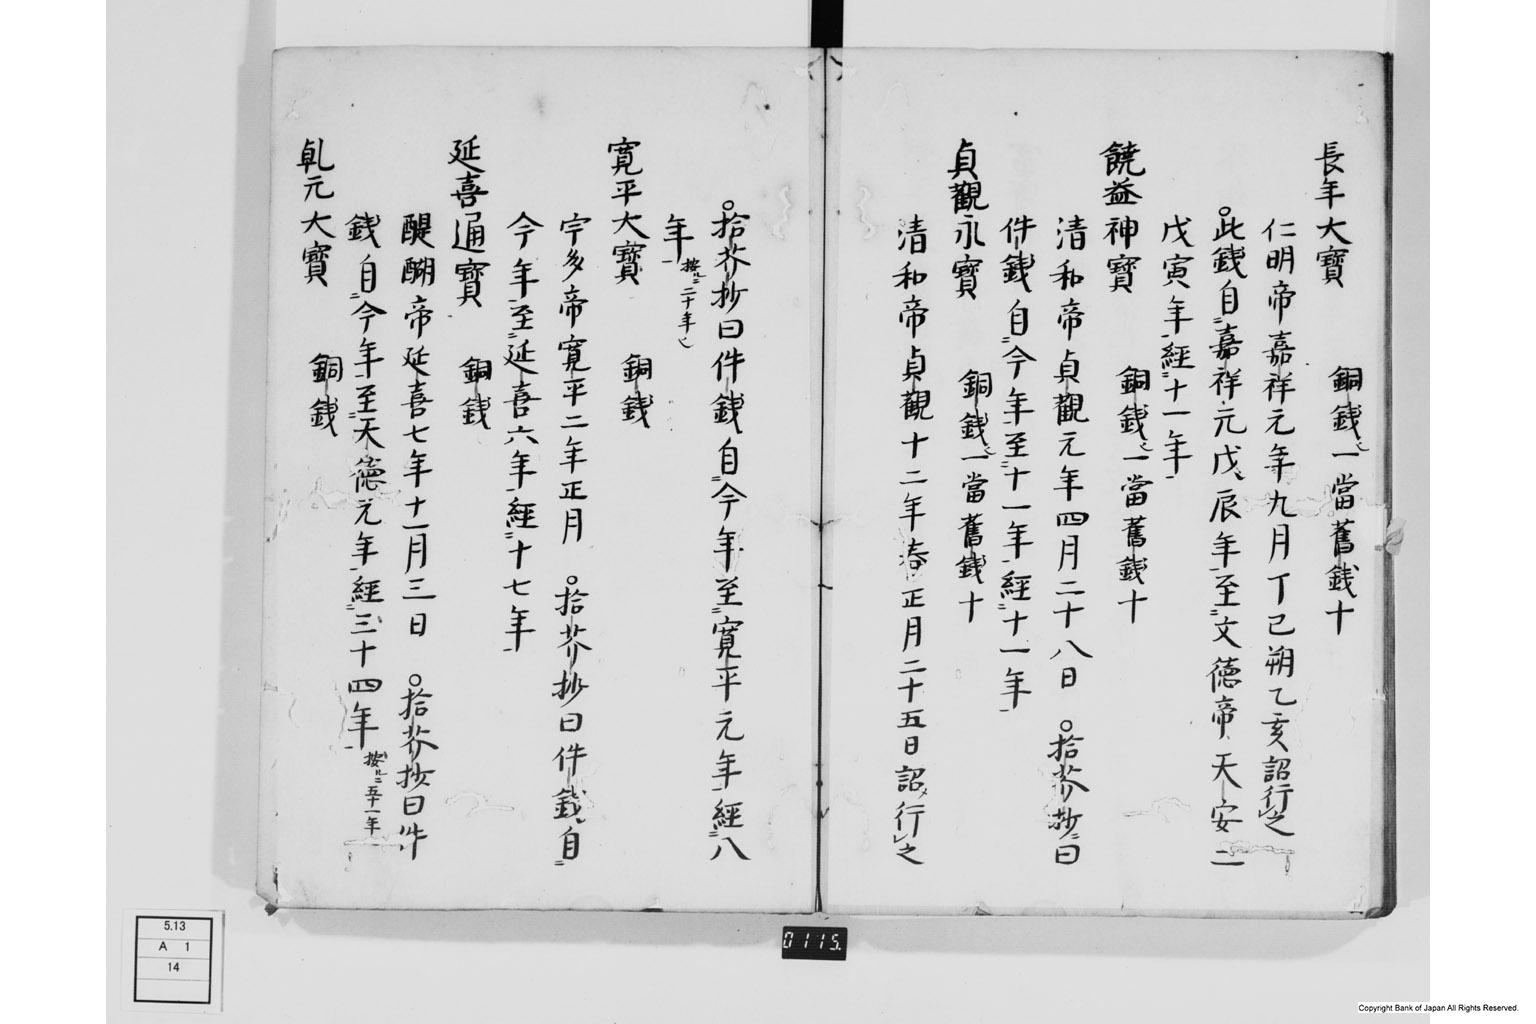 長年大寳　銅錢一當舊錢十
仁明帝嘉祥元年九月丁巳朔乙亥詔行之
○此錢自嘉祥元戊辰年至文德帝天安二
戊寅年經十一年
饒益神寳　銅錢一當舊錢十
清和帝貞觀元年四月二十八日　○拾芥抄曰
件錢自今年至十一年經十一年
貞觀永寳　銅錢一當舊錢十
清和帝貞觀十二年春正月二十五日詔行之
○拾芥抄曰件錢自今年至寛平元年經八
年 按ルニ二十年也
寛平大寳　銅錢
宇多帝寛平二年正月　○拾芥抄曰件錢自
今年至延喜六年經十七年
延喜通寳　銅錢
醍醐帝延喜七年十一月三日　○拾芥抄曰件
錢自今年至天德元年經三十四年 按ルニ五十一年
乹元大寳　銅錢
0115.
5.13
A 1
14
Copyright Bank of Japan All Rights Reserved.